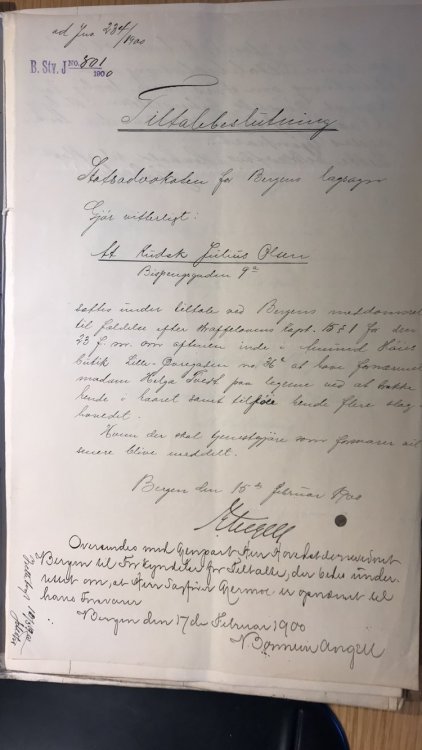 ad Jno 284/1900
B. Sty. J No. 801
1900
Tiltalebeslutning
Statsadvokaten for Bergens lagsogn
Gjør vitterligt:
At Rudolf Julius Olsen
Bispengsgaden 9a
sættes under tiltale ved Bergens meddomsret
til fældelse efter straffelovens kapt. 15 § 1 for den
23 f. m. om aftenen inde i
butik Lille-Øvregaden no 36 at have fornærmet
madam Helga Tvedt paa legeme ved at trække
hende i haaret samt tilføie hende flere slag i
hovedet.
Hvem der skal gjenstgjøre som forsvarer vil
senere blive meddelt.
Bergen den 15de februar 1900
Oversendes med Genpart Herr
Bergen til Forkyndelse for Tiltalte, der bedes under-
rettet om, at Herr Sagfører er opnævnt til
hans Forsvarer
Bergen den 17de Februar 1900